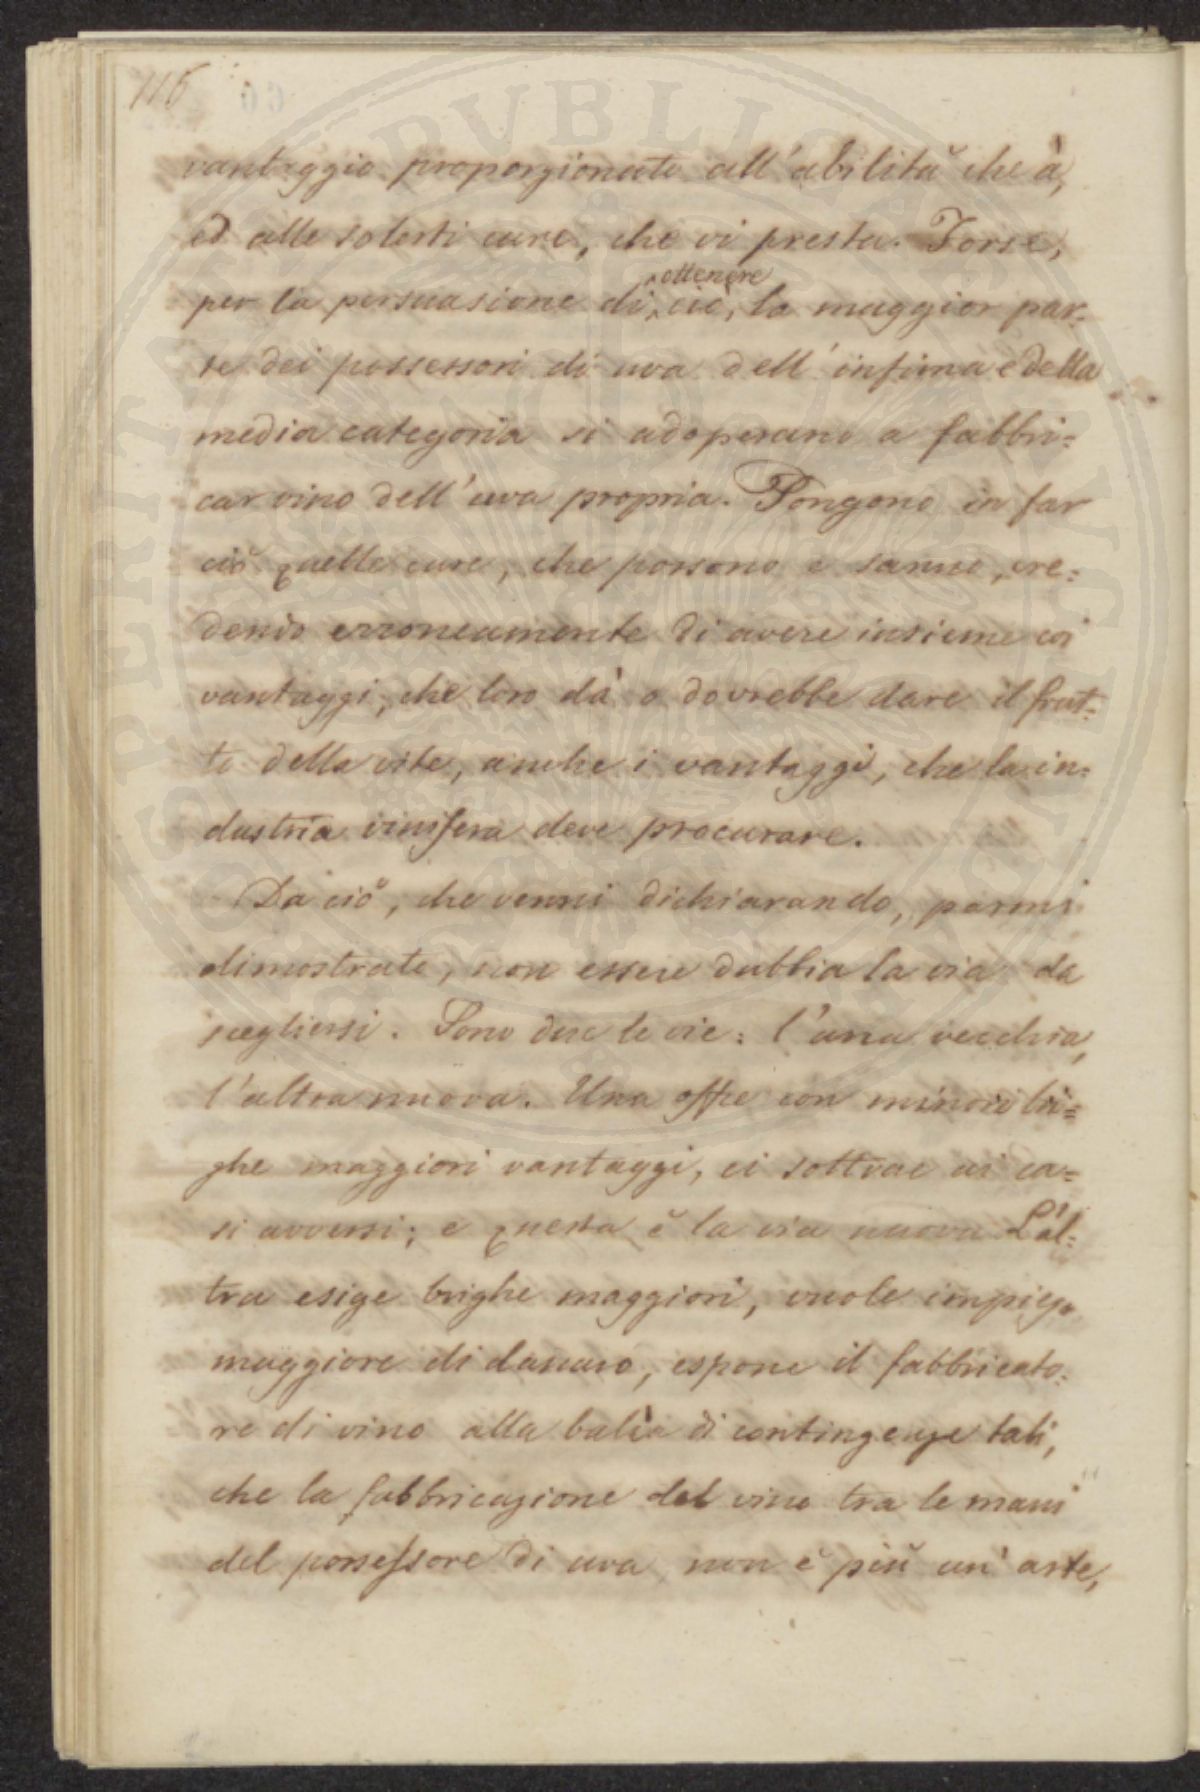 116
vantaggio proporzionato all'abilità che à,
ed alle solerti cure, che vi presta. Forse,
ottenere
per la persuasione di ciò, la maggior par=
te dei possessori di uva dell'infima e della
media categoria si adoperano a fabbri=
car vino dell'uva propria. Pongono in far
ciò quelle cure, che possono e sanno, cre=
dendo erroneamente di avere insieme coi
vantaggi, che loro dà o dovrebbe dare il frut=
to della vite, anche i vantaggi, che la in=
dustria vinifera deve procurare.
Da ciò, che venni dichiarando, parmi
dimostrato, non essere dubbia la via da
scegliersi. Sono due le vie: l'una vecchia,
l'altra nuova. Una offre con minori bri=
ghe maggiori vantaggi, ci sottrae ai ca=
si avversi; e questa è la via nuova. L'al=
tra esige brighe maggiori, vuole impiego
maggiore di danaro, espone il fabbricato=
re di vino alla balìa di contingenze tali,
che la fabbricazione del vino tra le mani
del possessore di uva non è più un'arte,
PVBLICAE
PROSPERITATI